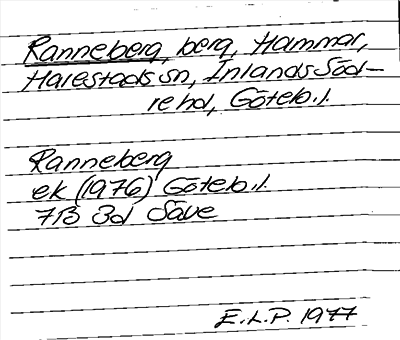 Ranneberg, berg, Hammar,
Harestads sn, Inlands Söd-
re hd, Göteb. l.
Ranneberg
ek (1976) Göteb. l.
7B 3d Säve
E.L.P. 1977